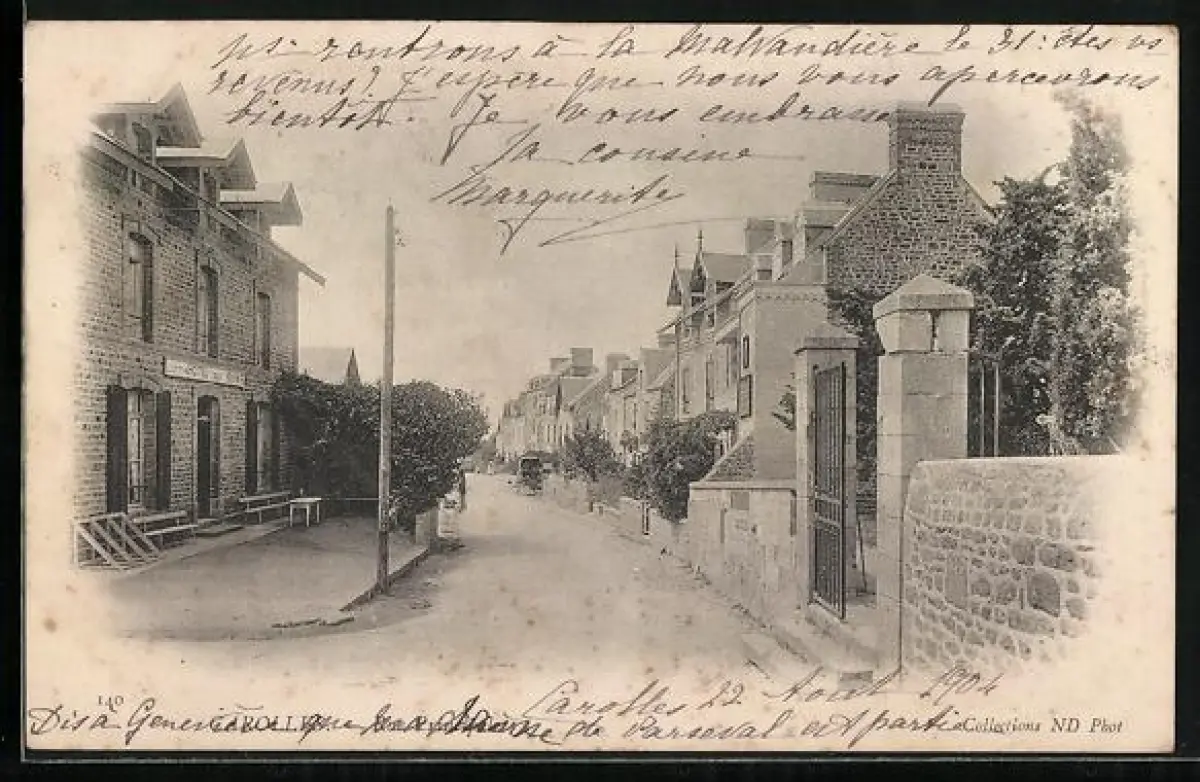 ns rentrons à la Malvandière le 31: êtes vs
revenus? J'espère que nous vous apercevrons
bientôt. Je vous embrasse
Ja cousine
Marguerite
Carolles 22 Août 1904
140
CAROLLES
Dis à Geneviève que de Parseval est partie
Collections ND Phot